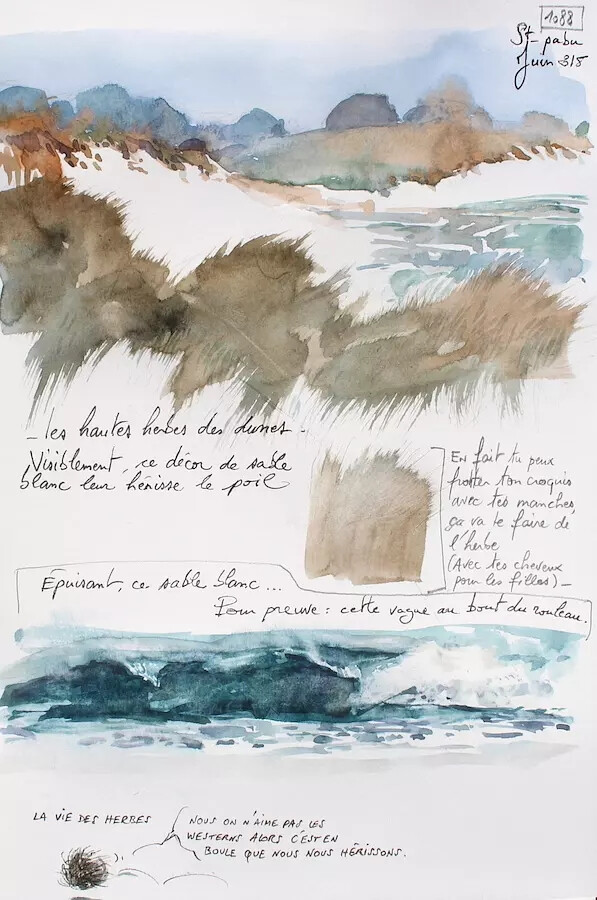 1088
St-pabu
Juin 315
- les hautes herbes des dunes -
Visiblement, ce décor de sable
blanc leur hérisse le poil
En fait tu peux
frotter ton croquis
avec tes manches,
ça va te faire de
l'herbe
(Avec tes cheveux
pour les filles) -
Épuisant, ce sable blanc...
Pour preuve : cette vague au bout du rouleau.
LA VIE DES HERBES
NOUS ON N'AIME PAS LES
WESTERNS ALORS C'EST EN
BOULE QUE NOUS NOUS HÉRISSONS.